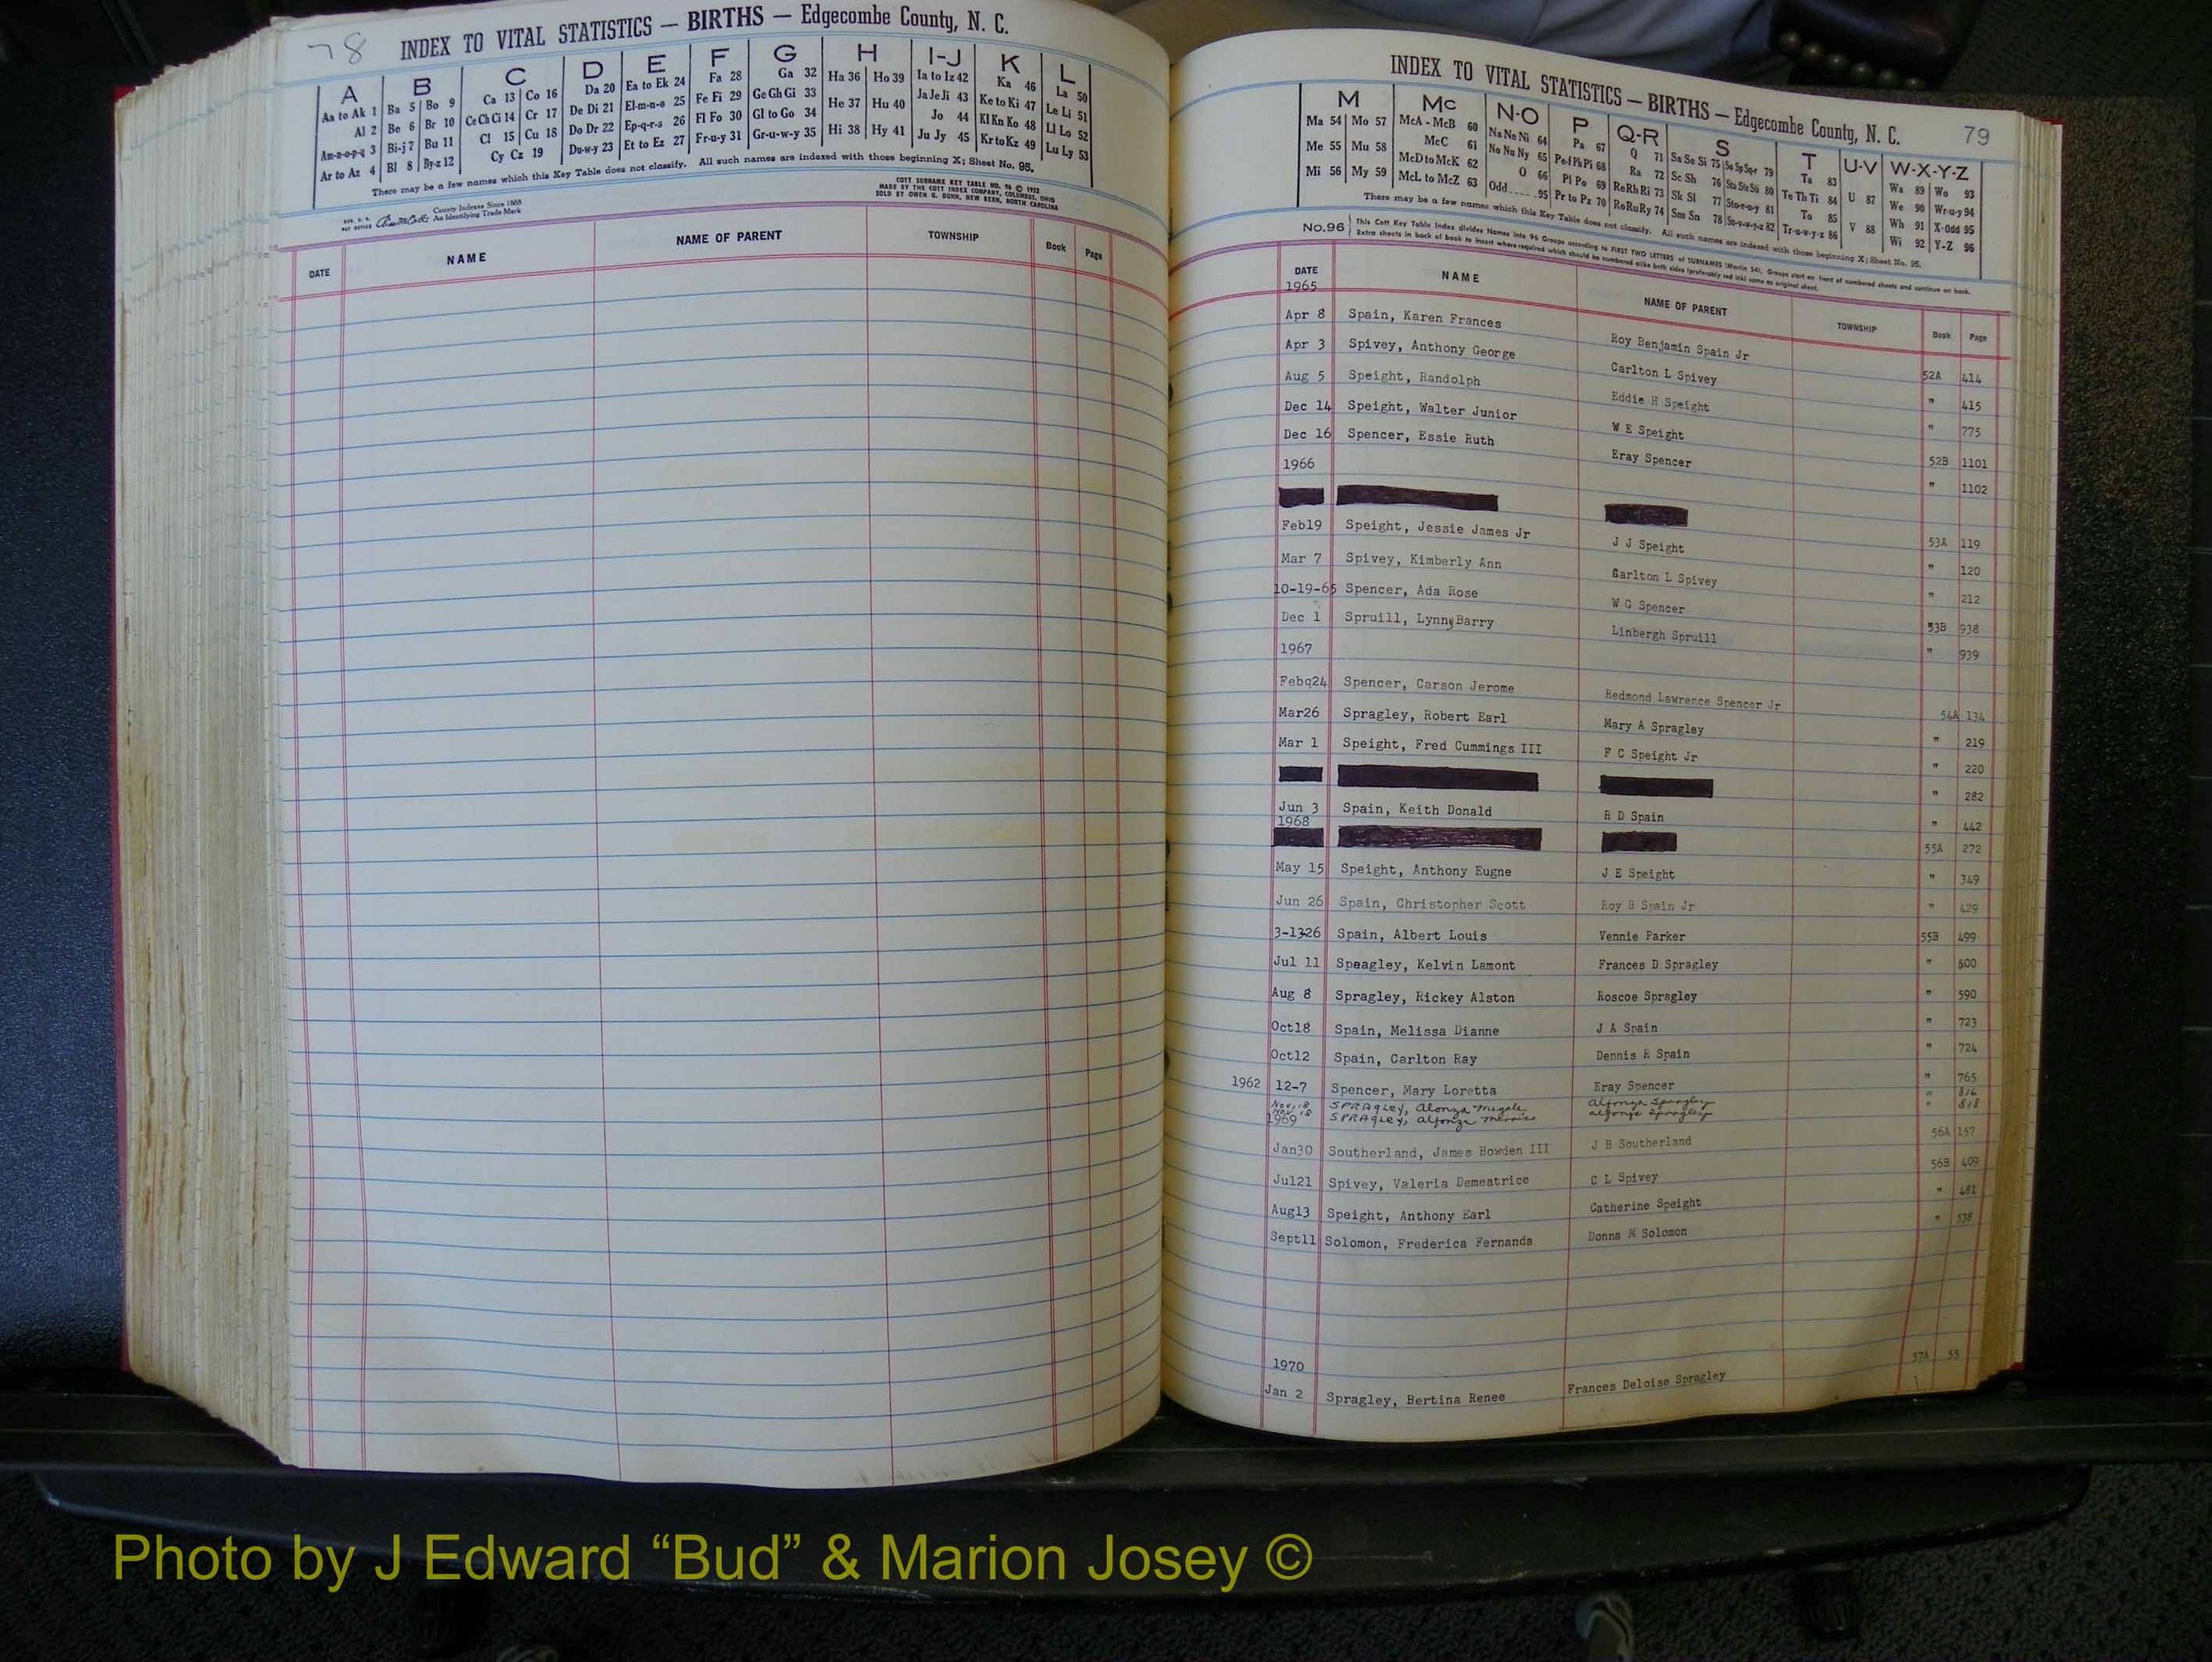 78
INDEX TO VITAL STATISTICS — BIRTHS — Edgecombe County, N. C.
A B C D E F G H I-J K L
Aa to Ak 1 Ba 5 Bo 9 Ca 13 Co 16 Da 20 Ea to Ek 24 Fa 28 Ga 32 Ha 36 Ho 39 Ia to Iz 42 Ka 46 La 50
Al 2 Be 6 Br 10 Ce Ch Ci 14 Cr 17 De Di 21 El-m-n-o 25 Fe Fi 29 Ge Gh Gi 33 He 37 Hu 40 Ja Je Ji 43 Ke to Ki 47 Le Li 51
Am-n-o-p-q 3 Bi-j 7 Bu 11 Cl 15 Cu 18 Do Dr 22 Ep-q-r-s 26 Fl Fo 30 Gl to Go 34 Hi 38 Hy 41 Jo 44 Kl Kn Ko 48 Ll Lo 52
Ar to Az 4 Bl 8 By-z 12 Cy Cz 19 Du-w-y 23 Et to Ez 27 Fr-u-y 31 Gr-u-w-y 35 Ju Jy 45 Kr to Kz 49 Lu Ly 53
There may be a few names which this Key Table does not classify. All such names are indexed with those beginning X; Sheet No. 95.
COTT SURNAME KEY TABLE NO. 96 © 1952
MADE BY THE COTT INDEX COMPANY, COLUMBUS, OHIO
SOLD BY OWEN G. DUNN, NEW BERN, NORTH CAROLINA
County Indexes Since 1888
An Identifying Trade Mark
DATE NAME NAME OF PARENT TOWNSHIP Book Page
INDEX TO VITAL STATISTICS — BIRTHS — Edgecombe County, N. C.
79
M Mc N-O P Q-R S T U-V W-X-Y-Z
Ma 54 Mo 57 McA - McB 60 Na Ne Ni 64 Pa 67 Q 71 Sa Se Si 75 So Sp Sq-r 79 Ta 83 U 87 Wa 89 Wo 93
Me 55 Mu 58 McC 61 No Nu Ny 65 Pe-f Ph Pi 68 Ra 72 Sc Sh 76 Sta Ste Sti 80 Te Th Ti 84 V 88 We 90 Wr-u-y 94
Mi 56 My 59 McD to McK 62 O 66 Pl Po 69 Re Rh Ri 73 Sk Sl 77 Sto-r-u-y 81 To 85 Wh 91 X-Odd 95
McL to McZ 63 Odd 95 Pr to Pz 70 Ro Ru Ry 74 Sm Sn 78 Su-v-w-y-z 82 Tr-u-w-y-z 86 Wi 92 Y-Z 96
There may be a few names which this Key Table does not classify. All such names are indexed with those beginning X; Sheet No. 95.
No.96
This Cott Key Table Index divides Names into 96 Groups according to FIRST TWO LETTERS of SURNAMES (Martin 54). Groups start on front of numbered sheets and continue on back.
Extra sheets in back of book to insert where required which should be numbered alike both sides (preferably red ink) same as original sheet.
DATE NAME NAME OF PARENT TOWNSHIP Book Page
1965
Apr 8 Spain, Karen Frances Roy Benjamin Spain Jr 52A 414
Apr 3 Spivey, Anthony George Carlton L Spivey " 415
Aug 5 Speight, Randolph Eddie H Speight " 775
Dec 14 Speight, Walter Junior W E Speight 52B 1101
Dec 16 Spencer, Essie Ruth Eray Spencer " 1102
1966
53A 119
Feb19 Speight, Jessie James Jr J J Speight " 120
Mar 7 Spivey, Kimberly Ann Carlton L Spivey " 212
10-19-65 Spencer, Ada Rose W G Spencer 53B 938
Dec 1 Spruill, Lynn Barry Linbergh Spruill " 939
1967
Febq24 Spencer, Carson Jerome Redmond Lawrence Spencer Jr 54A 134
Mar26 Spragley, Robert Earl Mary A Spragley " 219
Mar 1 Speight, Fred Cummings III F C Speight Jr " 220
" 282
Jun 3 Spain, Keith Donald R D Spain " 442
1968
55A 272
May 15 Speight, Anthony Eugne J E Speight " 349
Jun 26 Spain, Christopher Scott Roy B Spain Jr " 429
3-1326 Spain, Albert Louis Vennie Parker 55B 499
Jul 11 Speagley, Kelvin Lamont Frances D Spragley " 500
Aug 8 Spragley, Rickey Alston Roscoe Spragley " 590
Oct18 Spain, Melissa Dianne J A Spain " 723
Oct12 Spain, Carlton Ray Dennis R Spain " 724
1962 12-7 Spencer, Mary Loretta Eray Spencer " 765
Nov. 18 SPRAgley, Alonza Alfonza Spragley " 816
Nov. 18 SPRAgley, Alfonza Alfonza Spragley " 818
1969
Jan30 Southerland, James Bowden III J B Southerland 56A 157
Jul21 Spivey, Valeria Demeatrice C L Spivey 56B 409
Aug13 Speight, Anthony Earl Catherine Speight " 481
Sept11 Solomon, Frederica Fernanda Donna M Solomon " 538
1970
Jan 2 Spragley, Bertina Renee Frances Deloise Spragley 57A 55
Photo by J Edward “Bud” & Marion Josey ©